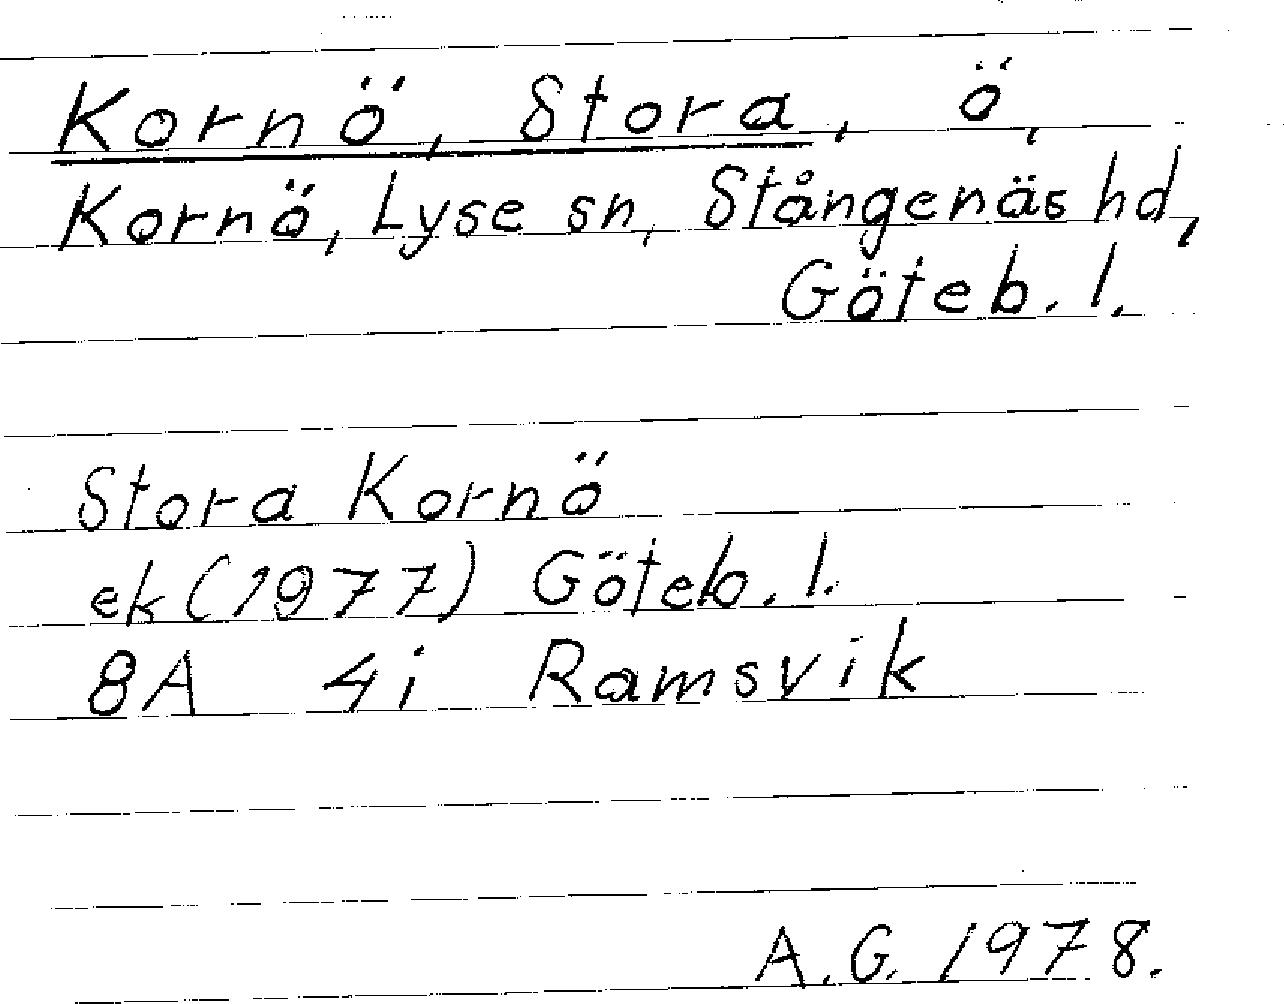 Kornö, Stora, ö,
Kornö, Lyse sn, Stångenäs hd,
Göteb. l.
Stora Kornö
ek (1977) Göteb. l.
8A 4i Ramsvik
A.G. 1978.